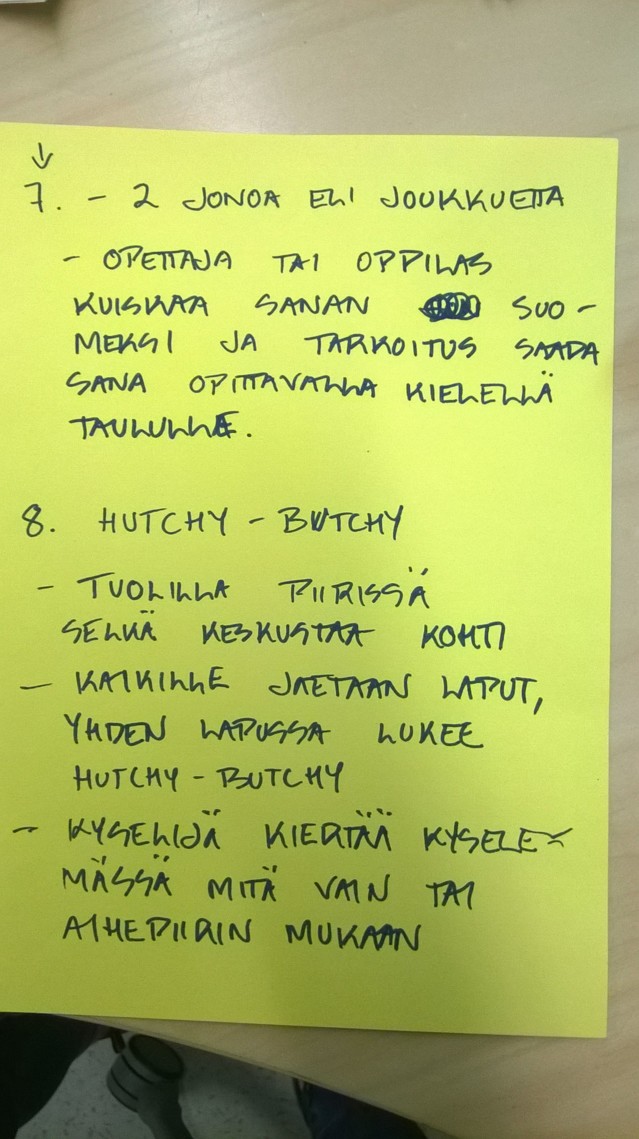 ↓
7. - 2 JONOA ELI JOUKKUETTA
- OPETTAJA TAI OPPILAS
KUISKAA SANAN SUO-
MEKSI JA TARKOITUS SAADA
SANA OPITTAVALLA KIELELLÄ
TAULULLE.
8. HUTCHY - BUTCHY
- TUOLILLA PIIRISSÄ
SELKÄ KESKUSTAA KOHTI
- KAIKILLE JAETAAN LAPUT,
YHDEN LAPUSSA LUKEE
HUTCHY - BUTCHY
- KYSELIJÄ KIERTÄÄ KYSELE-
MÄSSÄ MITÄ VAIN TAI
AIHEPIIRIN MUKAAN